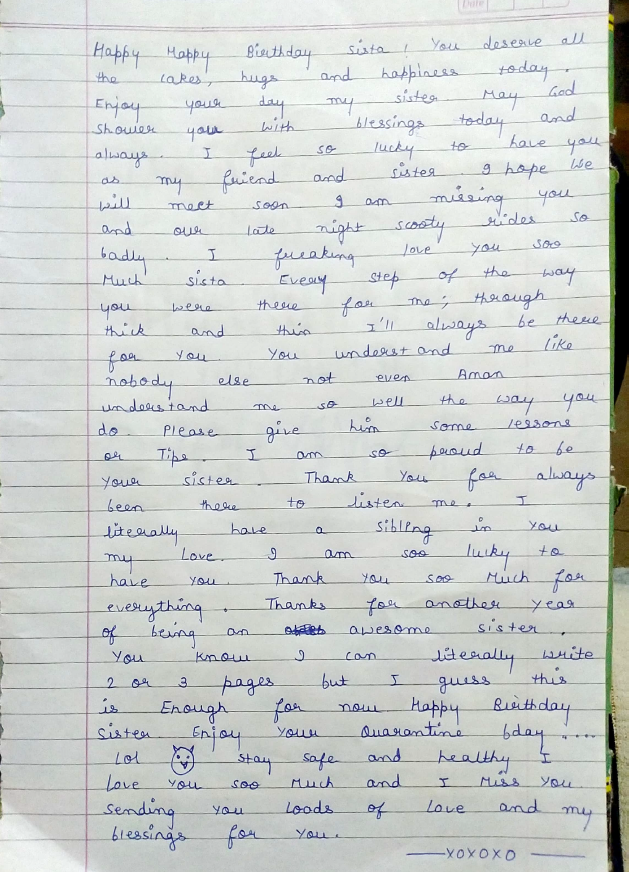 Date
Happy Happy Birthday sista ! You deserve all
the cakes, hugs and happiness today.
Enjoy your day my sister May God
shower you with blessings today and
always. I feel so lucky to have you
as my friend and sister. I hope we
will meet soon I am missing you
and our late night scooty rides so
badly. I freaking love you soo
Much sista. Every step of the way
you were there for me; through
thick and thin I'll always be there
for you. You understand me like
nobody else not even Aman
understand me so well the way you
do. Please give him some lessons
or Tips. I am so proud to be
your sister. Thank you for always
been there to listen me. I
literally have a sibling in you
my Love. I am soo lucky to
have you. Thank you soo Much for
everything. Thanks for another year
of being an awesome sister.
You know I can literally write
2 or 3 pages but I guess this
is Enough for now Happy Birthday
sister. Enjoy your Quarantine bday.....
lol stay safe and healthy I
Love you soo Much and I Miss you
sending you loads of love and my
blessings for you.
XOXOXO